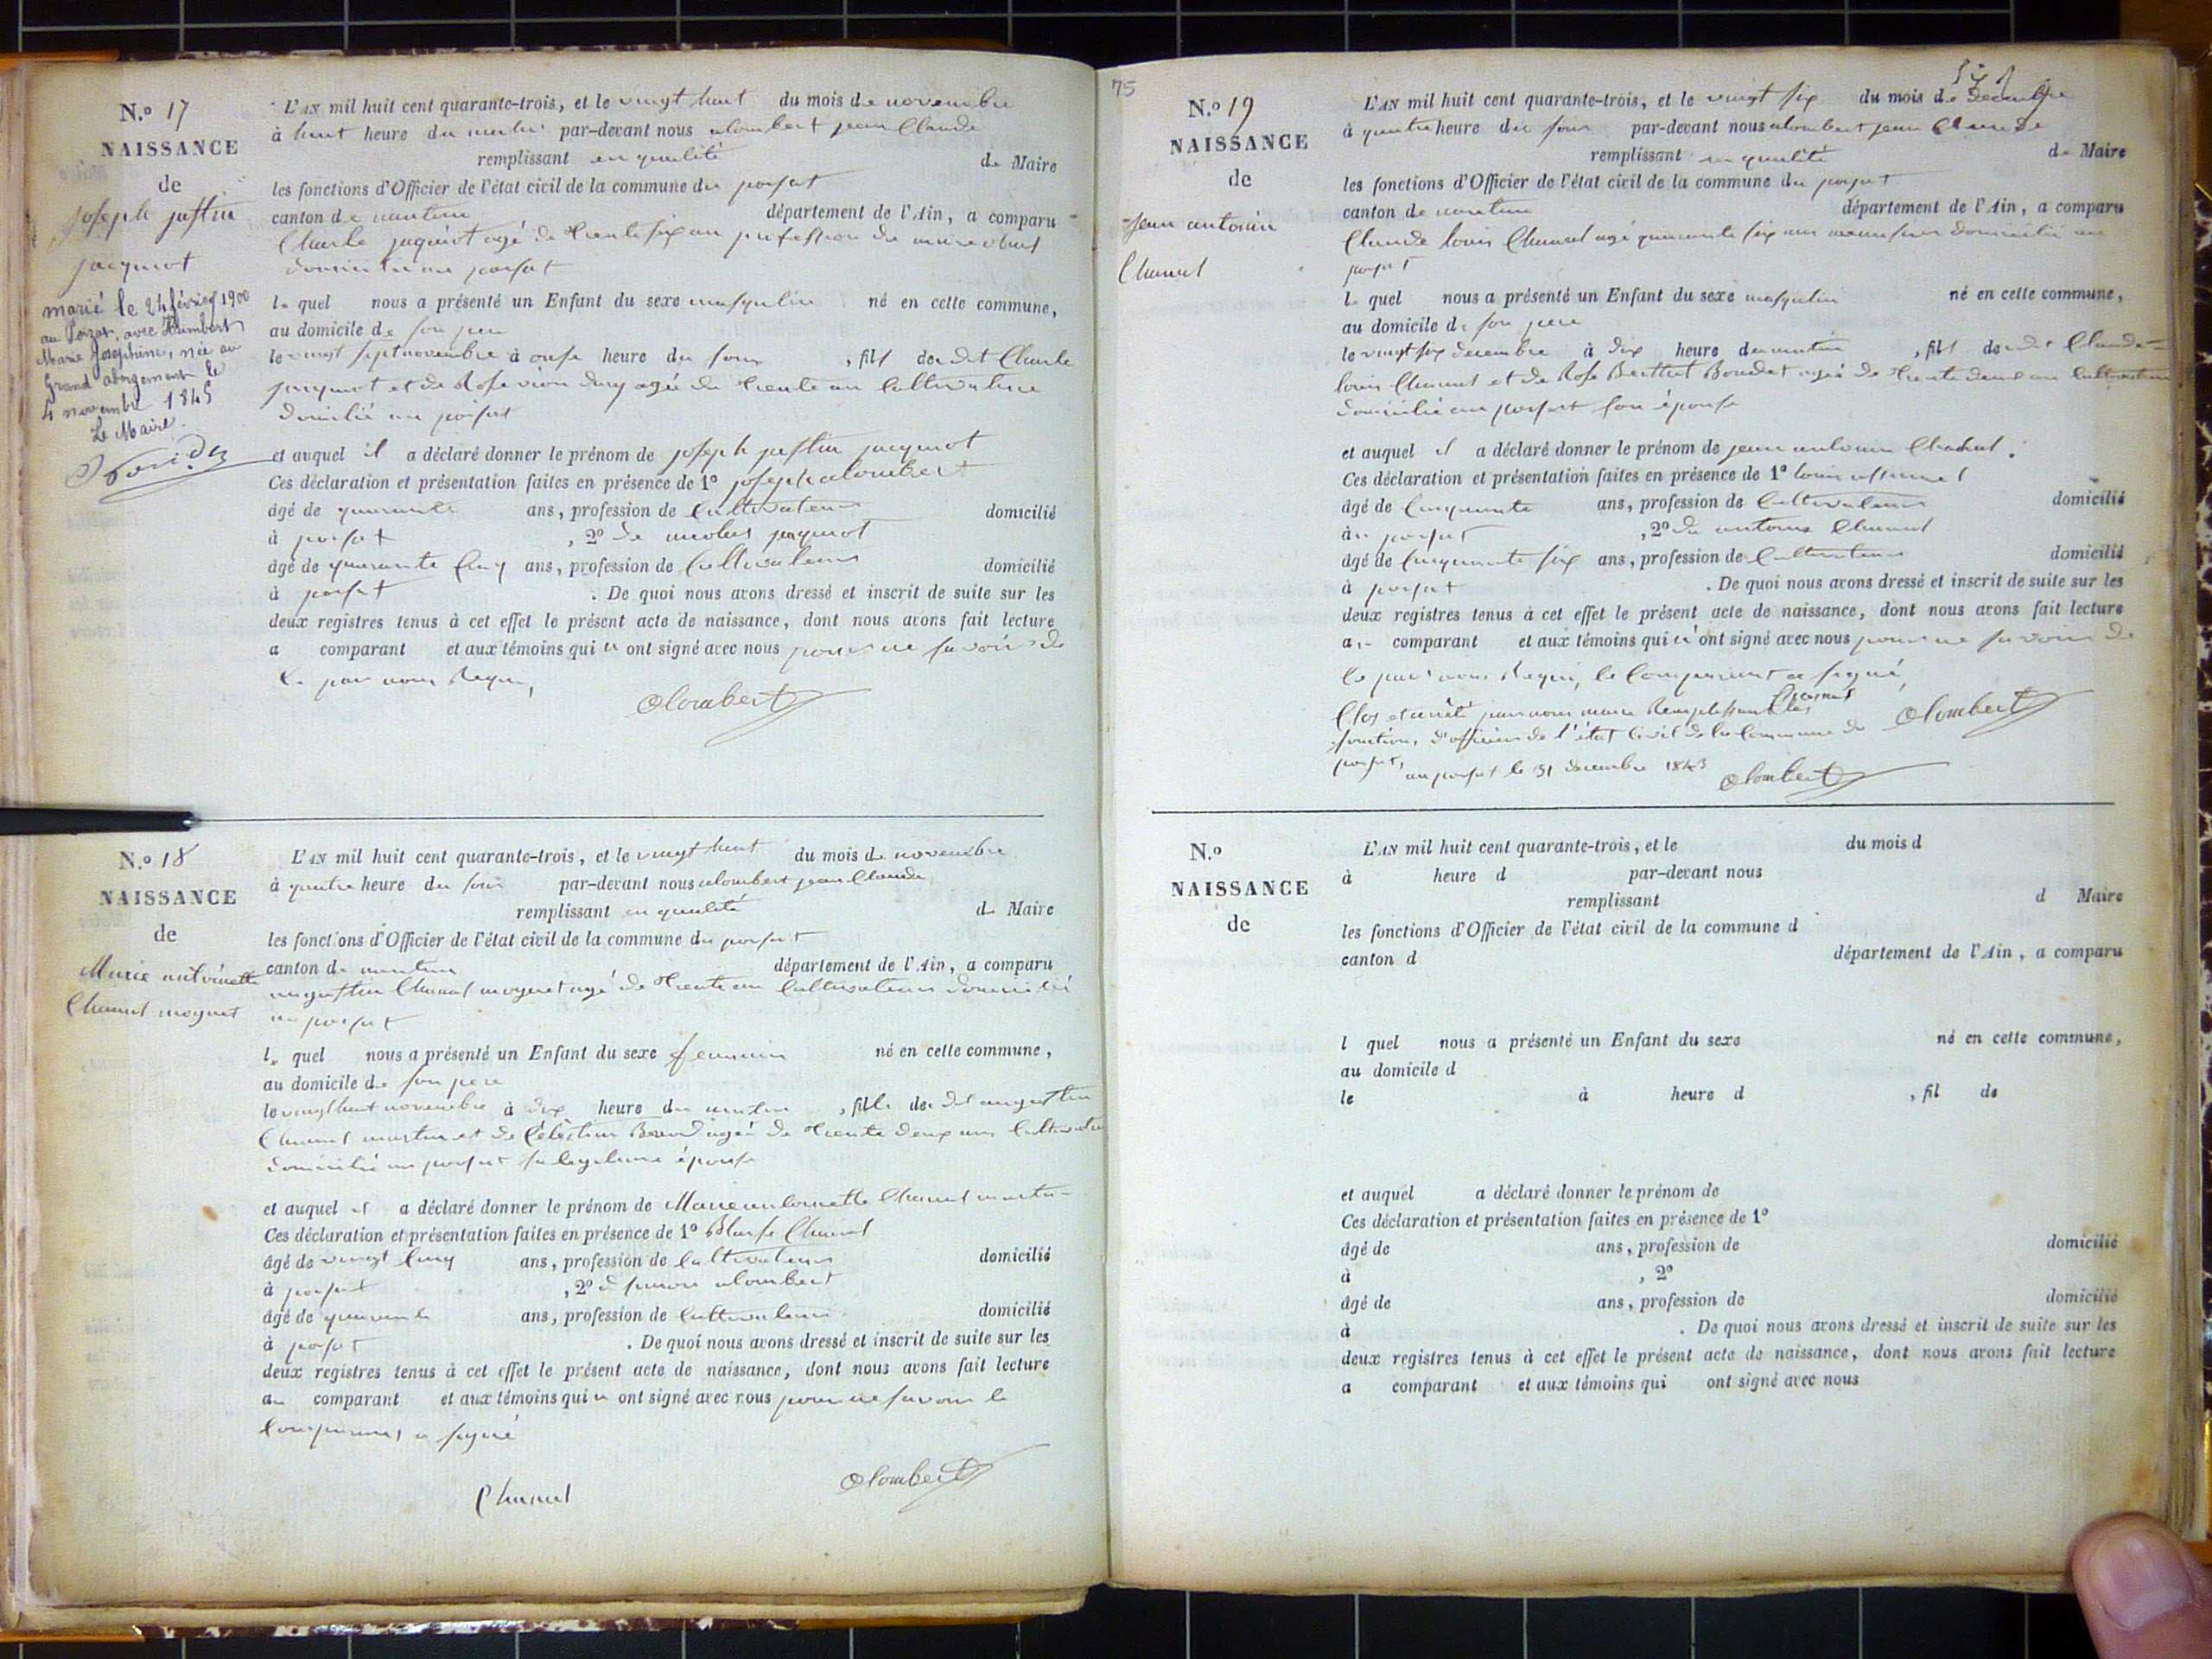 N.º 17
NAISSANCE
de
joseph justin
jacquiot
marié le 24 février 1900
au Poizat, avec Humbert
Marie Joséphine, née au
Grand abergement le
4 novembre 1845
Le Maire
L'AN mil huit cent quarante-trois, et le vingt huit du mois de novembre
à huit heure du matin par-devant nous alombert jean Claude
remplissant en qualité de Maire
les fonctions d'Officier de l'état civil de la commune du poisat
canton de nantua département de l'Ain, a comparu
Charle jaquiot agé de trente six an profession de
domicilié au poisat
le quel nous a présenté un Enfant du sexe masqulin né en cette commune,
au domicile de son pere
le vingt sept novembre à onse heure du soir, fils de dit Charle
jacquiot et de Rose agée de trente an Cultivatrice
domicilié au poisat
et auquel il a déclaré donner le prénom de joseph justin jacquiot
Ces déclaration et présentation faites en présence de 1º joseph alombert
âgé de quarante ans, profession de Cultivateur domicilié
à poisat, 2º de nicolas jaquiot
âgé de quarante Cinq ans, profession de Cultivateur domicilié
à poisat. De quoi nous avons dressé et inscrit de suite sur les
deux registres tenus à cet effet le présent acte de naissance, dont nous avons fait lecture
a comparant et aux témoins qui n ont signé avec nous pour ne savoir de
Ce par nous Requi,
Alombert
N.º 18
NAISSANCE
de
Marie antoinette
Chanel moynet
L'AN mil huit cent quarante-trois, et le vingt huit du mois de novembre
à quatre heure du soir par-devant nous alombert jean Claude
remplissant en qualité de Maire
les fonctions d'Officier de l'état civil de la commune du poisat
canton de nantua département de l'Ain, a comparu
augustin Chanel moynet agé de trente an Cultivateur domicilié
au poisat
le quel nous a présenté un Enfant du sexe feminin né en cette commune,
au domicile de son pere
le vingt huit novembre à dix heure du matin, fille de dit augustin
Chanel et de Célèstine agée de trente deux ans Cultivatrice
domicilié au poisat sa legitime épouse
et auquel il a déclaré donner le prénom de Marie antoinette Chanel
Ces déclaration et présentation faites en présence de 1º Blaise Chanel
âgé de vingt Cinq ans, profession de Cultivateur domicilié
à poisat, 2º de simon alombert
âgé de quarante ans, profession de Cultivateur domicilié
à poisat. De quoi nous avons dressé et inscrit de suite sur les
deux registres tenus à cet effet le présent acte de naissance, dont nous avons fait lecture
au comparant et aux témoins qui n ont signé avec nous pour ne savoir le
Comparant a signé
Chanel Alombert
75
N.º 19
NAISSANCE
de
Jean antonin
Chanel
L'AN mil huit cent quarante-trois, et le vingt six du mois de Décembre
à quatre heure du soir par-devant nous alombert jean Claude
remplissant en qualité de Maire
les fonctions d'Officier de l'état civil de la commune du poisat
canton de nantua département de l'Ain, a comparu
Claude louis Chanel agé quarante six ans domicilié au
poisat
le quel nous a présenté un Enfant du sexe masqulin né en cette commune,
au domicile de son pere
le vingt six decembre à dix heure du matin, fils de dit Claude
louis Chanel et de Rose Berthet Bondet agée de trente deux an Cultivatrice
domicilié au poisat son épouse
et auquel il a déclaré donner le prénom de jean antonin Chanel.
Ces déclaration et présentation faites en présence de 1º louis
âgé de Cinquante ans, profession de Cultivateur domicilié
à poisat, 2º de antoine Chanel
âgé de Cinquante six ans, profession de Cultivateur domicilié
à poisat. De quoi nous avons dressé et inscrit de suite sur les
deux registres tenus à cet effet le présent acte de naissance, dont nous avons fait lecture
au comparant et aux témoins qui n'ont signé avec nous pour ne savoir de
Ce par nous Requi, le Comparant a signé,
Clos et arrêté par nous maire Remplissant les
fonction, d'officier de l'état Civil de la Commune de Alombert
poisat, au poisat le 31 decembre 1843 Alombert
N.º
NAISSANCE
de
L'AN mil huit cent quarante-trois, et le du mois d
à heure d par-devant nous
remplissant d Maire
les fonctions d'Officier de l'état civil de la commune d
canton d département de l'Ain, a comparu
l quel nous a présenté un Enfant du sexe né en cette commune,
au domicile d
le à heure d, fil de
et auquel a déclaré donner le prénom de
Ces déclaration et présentation faites en présence de 1º
âgé de ans, profession de domicilié
à, 2º
âgé de ans, profession de domicilié
à. De quoi nous avons dressé et inscrit de suite sur les
deux registres tenus à cet effet le présent acte de naissance, dont nous avons fait lecture
a comparant et aux témoins qui ont signé avec nous